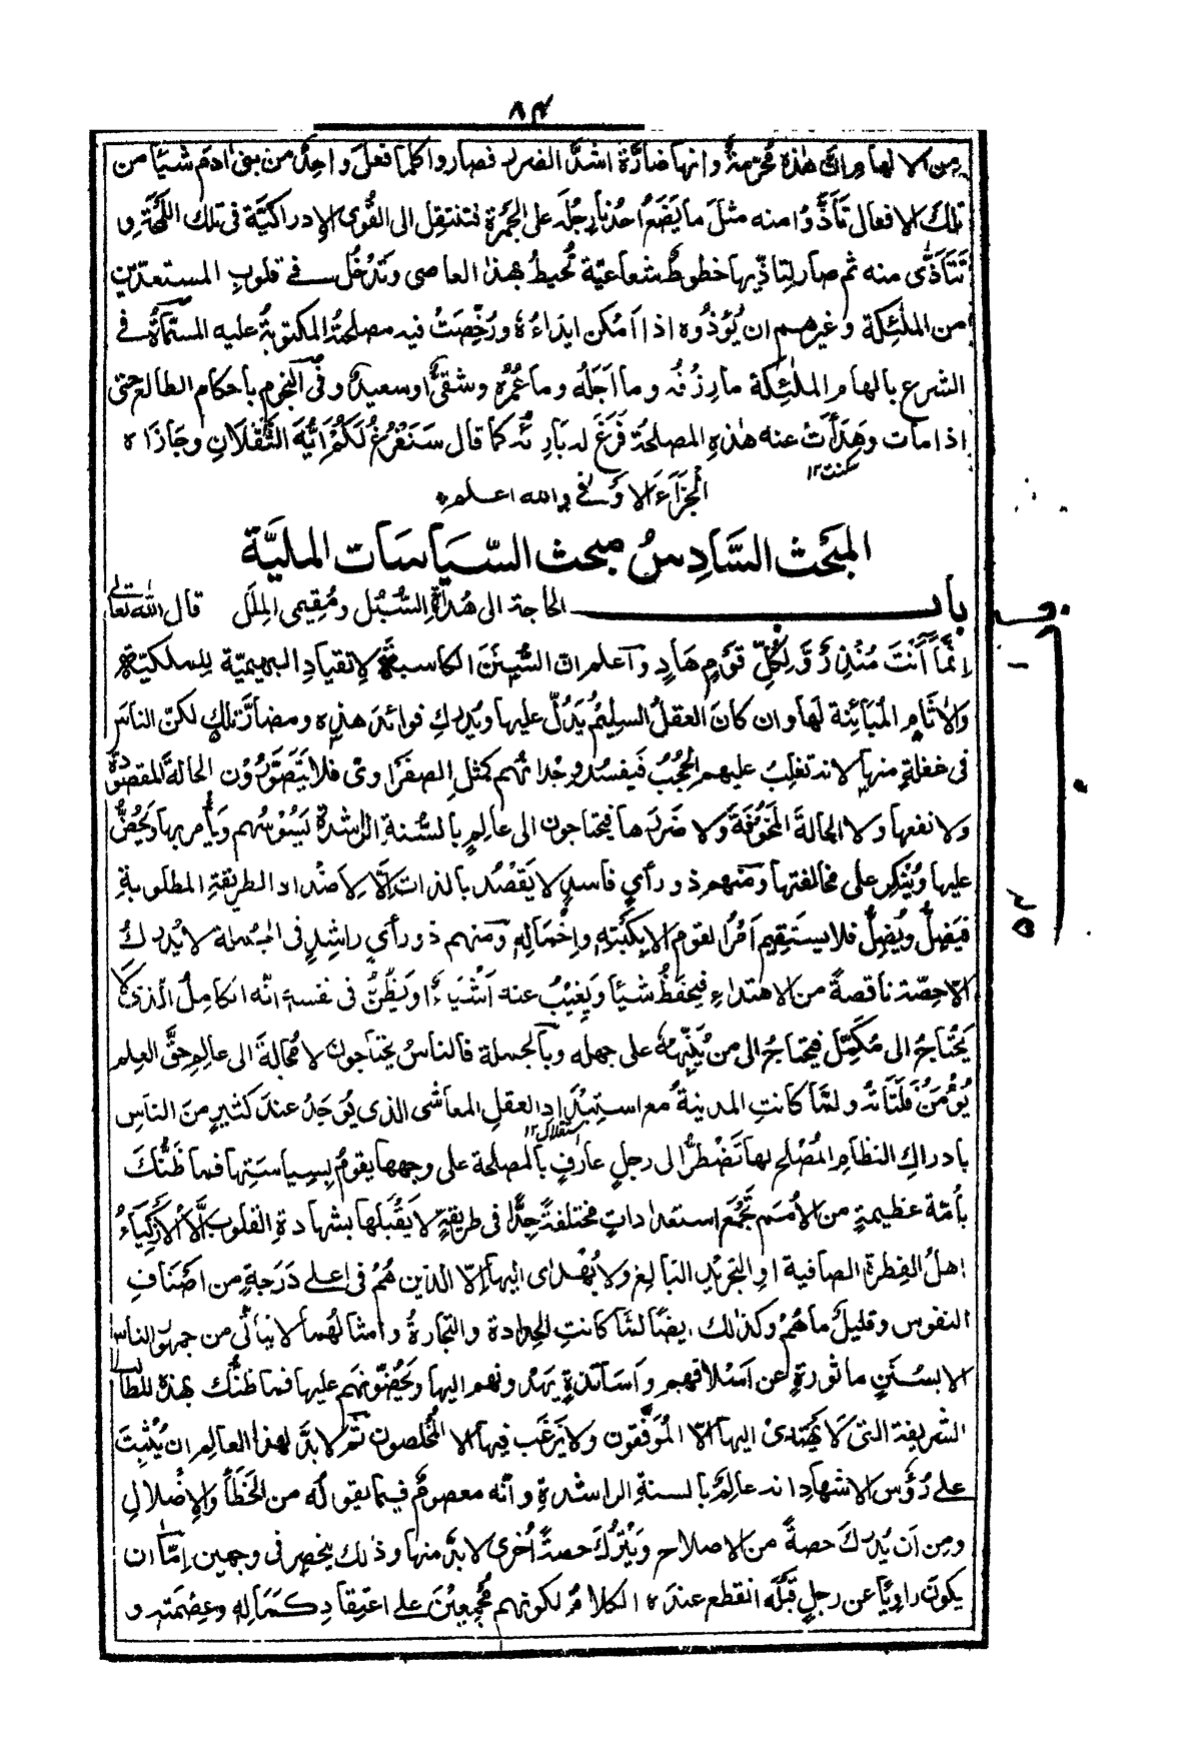 ٨٣
من الالهام ان هٰذه مُحرمةٌ وانها ضارّة اشدّ الضرر فصاروا كلما فعلَ واحِدٌ من بنى اٰدم شيئًا من
تلكَ الافعال تَأَذَّوا منه مثلَ ما يَضَعُ احدنا رِجلَه على الجمرةِ فتنتقِل الى القُوى الإدراكيّة فى تلك اللَّمْحَةِ و
تَتَأذّٰى منه ثم صار لِتاذّيها خطوطٌ شعاعيّة تُحيطُ بهٰذا العاصى وتَدْخُل فے قلوبِ المستعدّين
من الملٰئِكة وغيرهم ان يُؤذُوه اذا اَمْكن ايذاءُهٗ ورُخِّصَتْ فيه مصلحةُ المكتوبةُ عليه المسمّاةُ فے
الشرع بالهام الملٰئِكة ما رِزْقُه وما اَجَلُه وما عُمُرُه وشقىٌّ او سعيدٌ وفى النجوم باحكام الطالع حتى
اذا مات وهَدَأَتْ عنه هٰذهِ المصلحة فَرَغَ له بَارِئُه كما قال سَنَفْرُغُ لَكُمْ اَيُّهَ الثَّقَلَانِ وجَازَاه
سكنت ١٢
الجَزَآءَ الاَوْفٰے والله اعلم
المَبْحَث السَّادِسُ مبحث السِّيَاسَات المليَّة
باب الحاجة الى هُدَاةِ السُّبُل ومُقِيمى المِلَل قال الله تعالٰى
اِنَّمَآ اَنْتَ مُنْذِرٌ وَّلِكُلِّ قَوْمٍ هَادٍ وٓاعلم انّ السُّنَنَ الكاسبةَ لِانقيادِ البهيميّة لِلملكيّة
وَالآثامِ المُبَائِنَة لَها وان كانَ العقلُ السليمُ يَدُلّ عليها ويُدركِ فوائدَ هٰذِه ومضارَّ تلك لكنّ الناسَ
فى غفلةٍ منها لانه تغلِبُ عليهم الحُجُبُ فيفسُد وِجدانُهم كمثلِ الصفراوىّ فلا يَتَصَوَّرُوْن الحالةَ المقصودةَ
ولا نفعها ولا الحالةَ المَخُوْفَةَ ولا ضَررها فيحتاجون الى عالِمٍ بالسُّنة الراشدة يَسُوْسُهم ويَأمر بها ويَحُضّ
عليها ويُنكِر على مخالفتها ومنهم ذو رأىٍ فاسدٍ لا يَقصُد بالذات اِلّا لِاضْداد الطريقةِ المطلوبةِ
فيَضِلُّ ويُضِلُّ فلا يستَقِيم اَمْرُ القوم الا بِكَبْتِهٖ واِخْمَالِه ومنهم ذو رأىٍ راشدٍ فى الجُملة لا يُدرِكُ
الّا حِصّة ناقصةً من الاهتداءِ فيحفَظُ شيئًا ويَغِيْبُ عنه اَشْيَاءُ او يَظُنُّ فى نفسه انّه الكامِلُ الّذى لا
يَحْتاجُ الى مُكَمِّلٍ فيحتاجُ الى من يُنَبِّهُهٗ على جهله وبالجملة فالناسُ يحتاجون لا مُحالةَ الى عالِمٍ حقَّ العِلم
يُؤْمَنُ فَلَتَاتُه ولمّا كانتِ المدينةُ مع استِبْدادِ العقلِ المعاشى الذى يُوجَدُ عند كثيرٍ منَ الناسِ
استقلال ١٢
بادراكِ النظامِ المُصْلِح لها تَضْطرُّ الى رجلٍ عارفٍ بالمصلحة على وجهها يقومُ بِسِياسَتِها فما ظَنُّكَ
بأُمّة عظيمةٍ من الاُمَم تَجْمَع استعداداتٍ مختلفةً جدًّا فى طريقةٍ لا يَقْبَلها بشهادةِ القلوب الّا الأزكياءُ
اهلُ الفِطرةِ الصافية او التجريدِ البالِغ ولا يُهْدٰى اليها اِلّا الذين هُمْ فى اعلٰے دَرَجةٍ من اصْنَافِ
النفوس وقليلٌ مّا هُمْ وكذٰلك ايضًا لمّا كانتِ الحِدادة والتجارةُ وامثالُهما لا يتأتّى من جمهور الناس
الا بِسُنَنٍ ماثورةٍ عن اَسْلافهم واَسَاتذةٍ يَهْدونهم اليها ويَحُضّونهم عليها فما ظنُّك بهٰذه المطالب
الشريفة التى لَا يَهْتدىْ اليها اِلّا المُوَفَّقون ولا يَرْغَب فيها الا المُخلصون ثم لا بدّ لهٰذا العالِم ان يُثْبِتَ
علےٰ رُؤُس الاشهادِ انه عالِمٌ بالسنةِ الراشدةِ وانّه معصومٌ فيما يقولُه من الخَطَأ والاِضْلالِ
ومِن اَن يُدركَ حصةً من الاصلاح ويَتْرُكَ حصةً اُخرى لا بدّ منها وذٰلك ينحصِر فى وجهين اِمّا ان
يكونَ راوِيًا عن رجلٍ قَبْلَه انقطع عنده الكلامُ لكونهم مُجْمِعِيْنَ علےٰ اعتِقادِ كَمَالِهٖ وعِصْمَتِه و